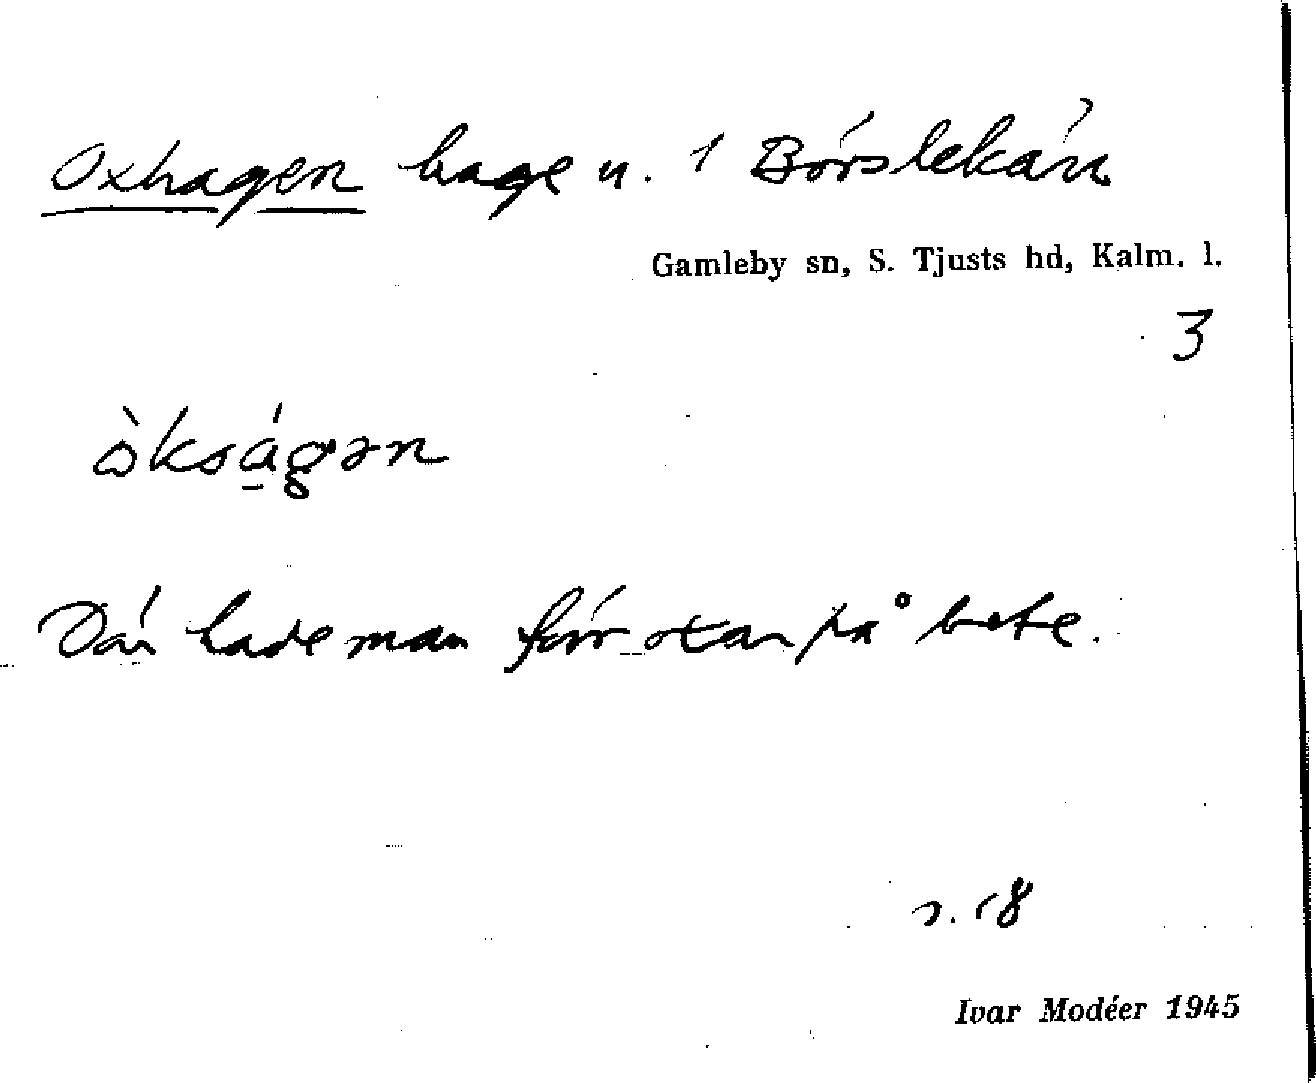 Oxhagen hage u. 1 Börslekärr
Gamleby sn, S. Tjusts hd, Kalm. l.
3
òksá̱gən
Där hade man förr oxar på bete.
s. 18
Ivar Modéer 1945